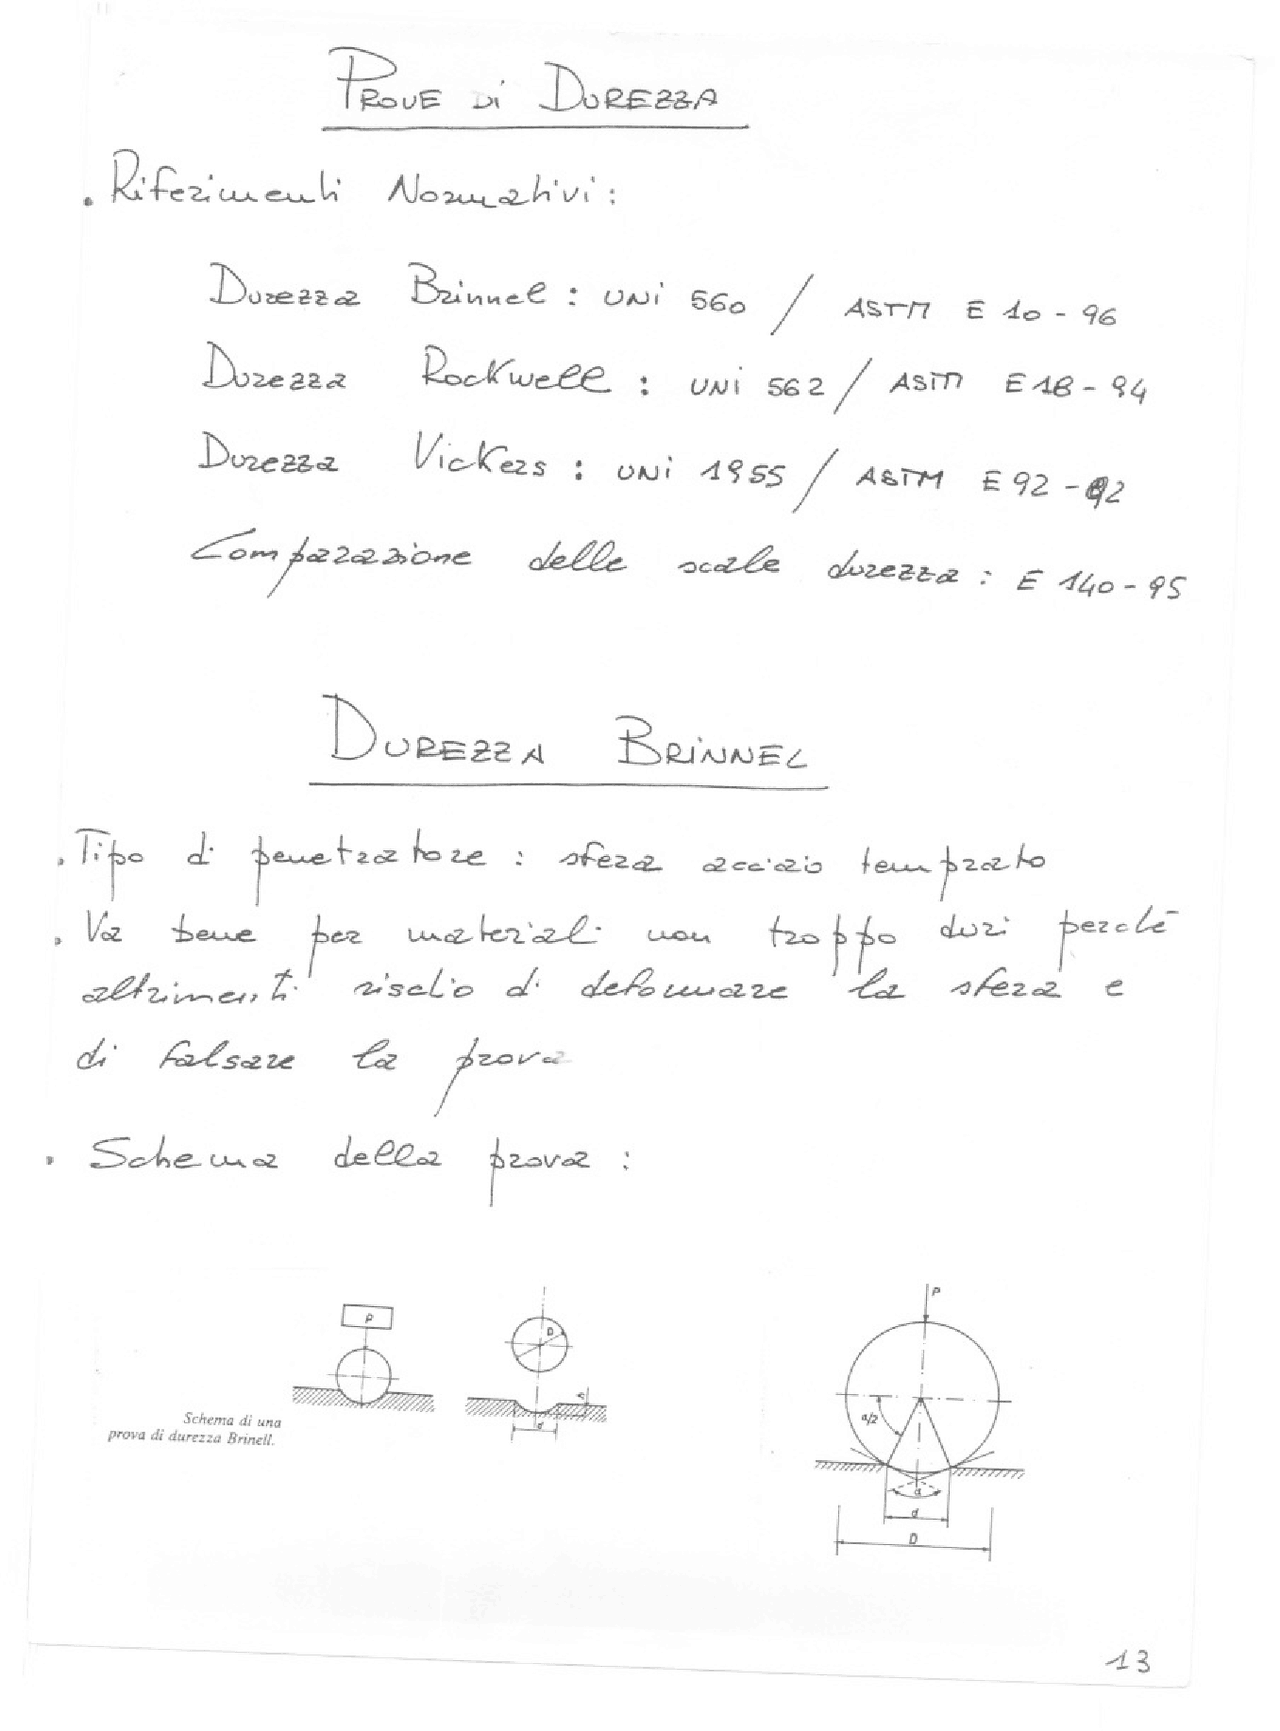 PROVE Di DUREZZA
. Riferimenti Normativi:
Durezza Brinnel : UNi 560 / ASTM E 10 - 96
Durezza Rockwell : UNi 562 / ASTM E 18 - 94
Durezza Vickers : UNi 1955 / ASTM E 92 - 92
Comparazione delle scale durezza : E 140 - 95
DUREZZA BRiNNEL
. Tipo di penetratore : sfera acciaio temprato
. Va bene per materiali non troppo duri perchè
altrimenti rischio di deformare la sfera e
di falsare la prova
. Schema della prova :
P
D
d
Schema di una
prova di durezza Brinell.
P
α/2
α
d
D
13